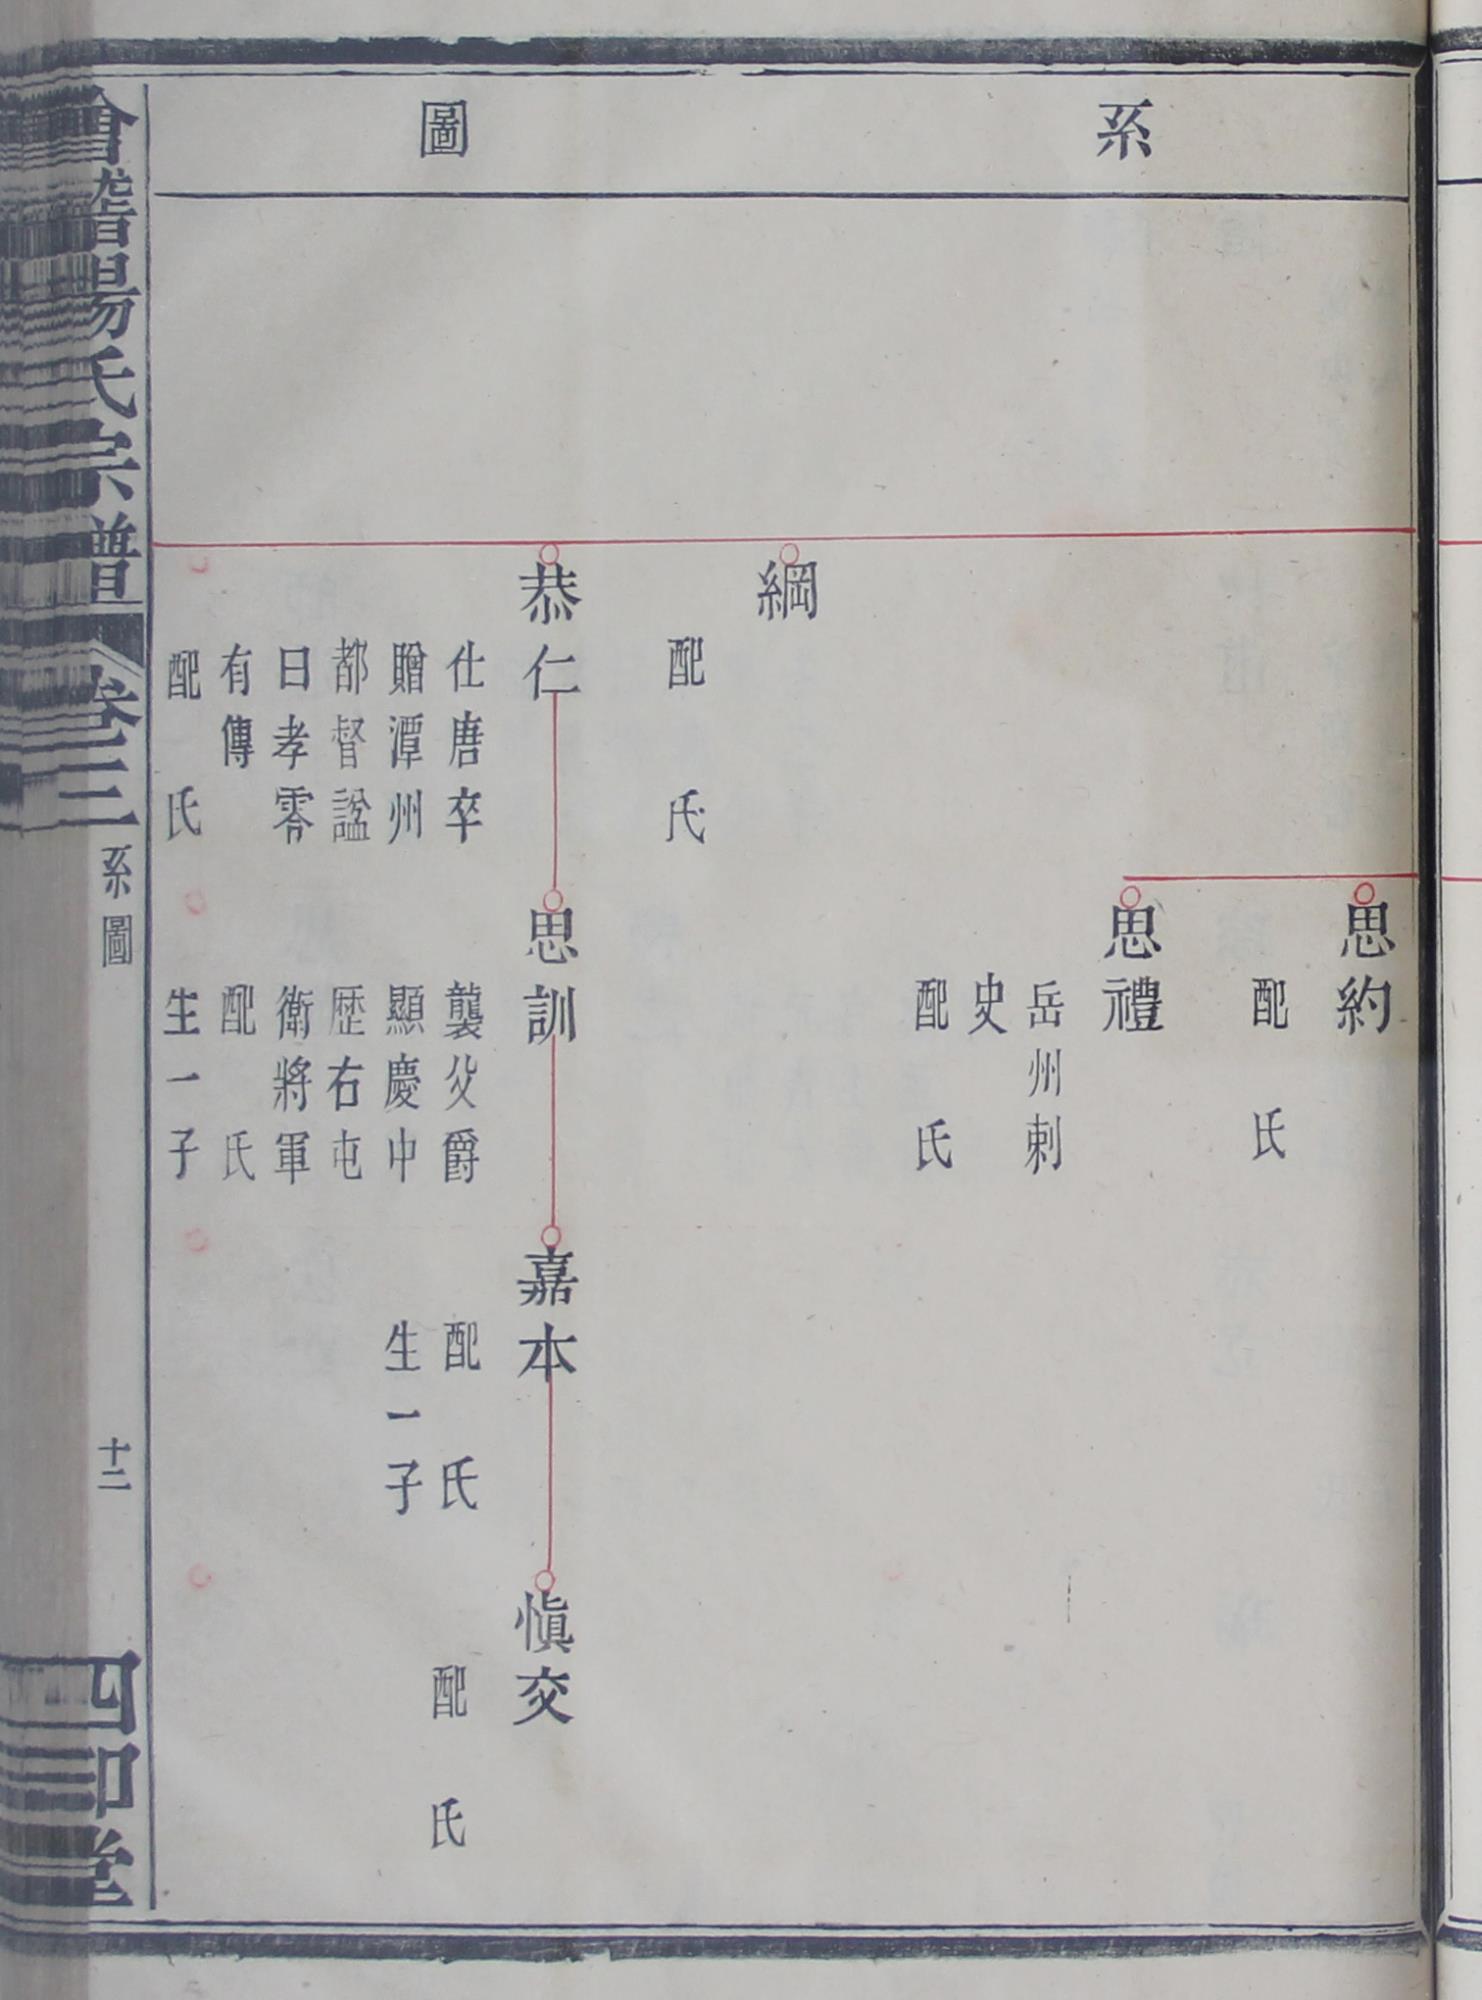 系圖
思約
配氏
思禮
岳州刺
史
配氏
綱
配氏
恭仁
仕唐卒
贈潭州
都督諡
曰孝零
有傳
配氏
思訓
襲父爵
顯慶中
歷右屯
衛將軍
配氏
生一子
嘉本
配氏
生一子
愼交
配氏
會稽楊氏宗譜
卷三
系圖
十二
四知堂